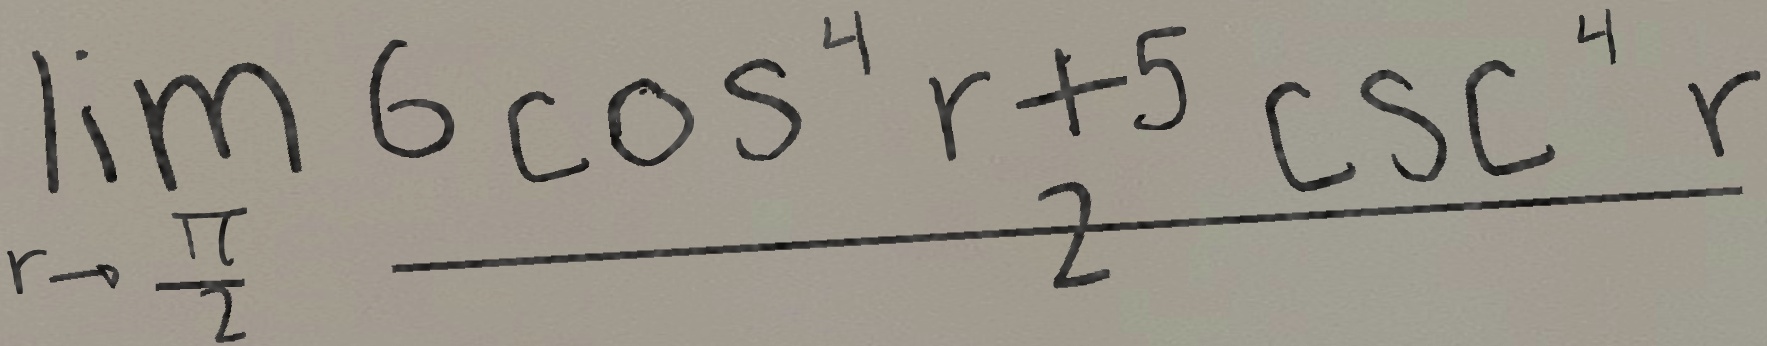 \lim_{r \to \frac{\pi}{2}} \frac{6 \cos^4 r + 5 \csc^4 r}{2}